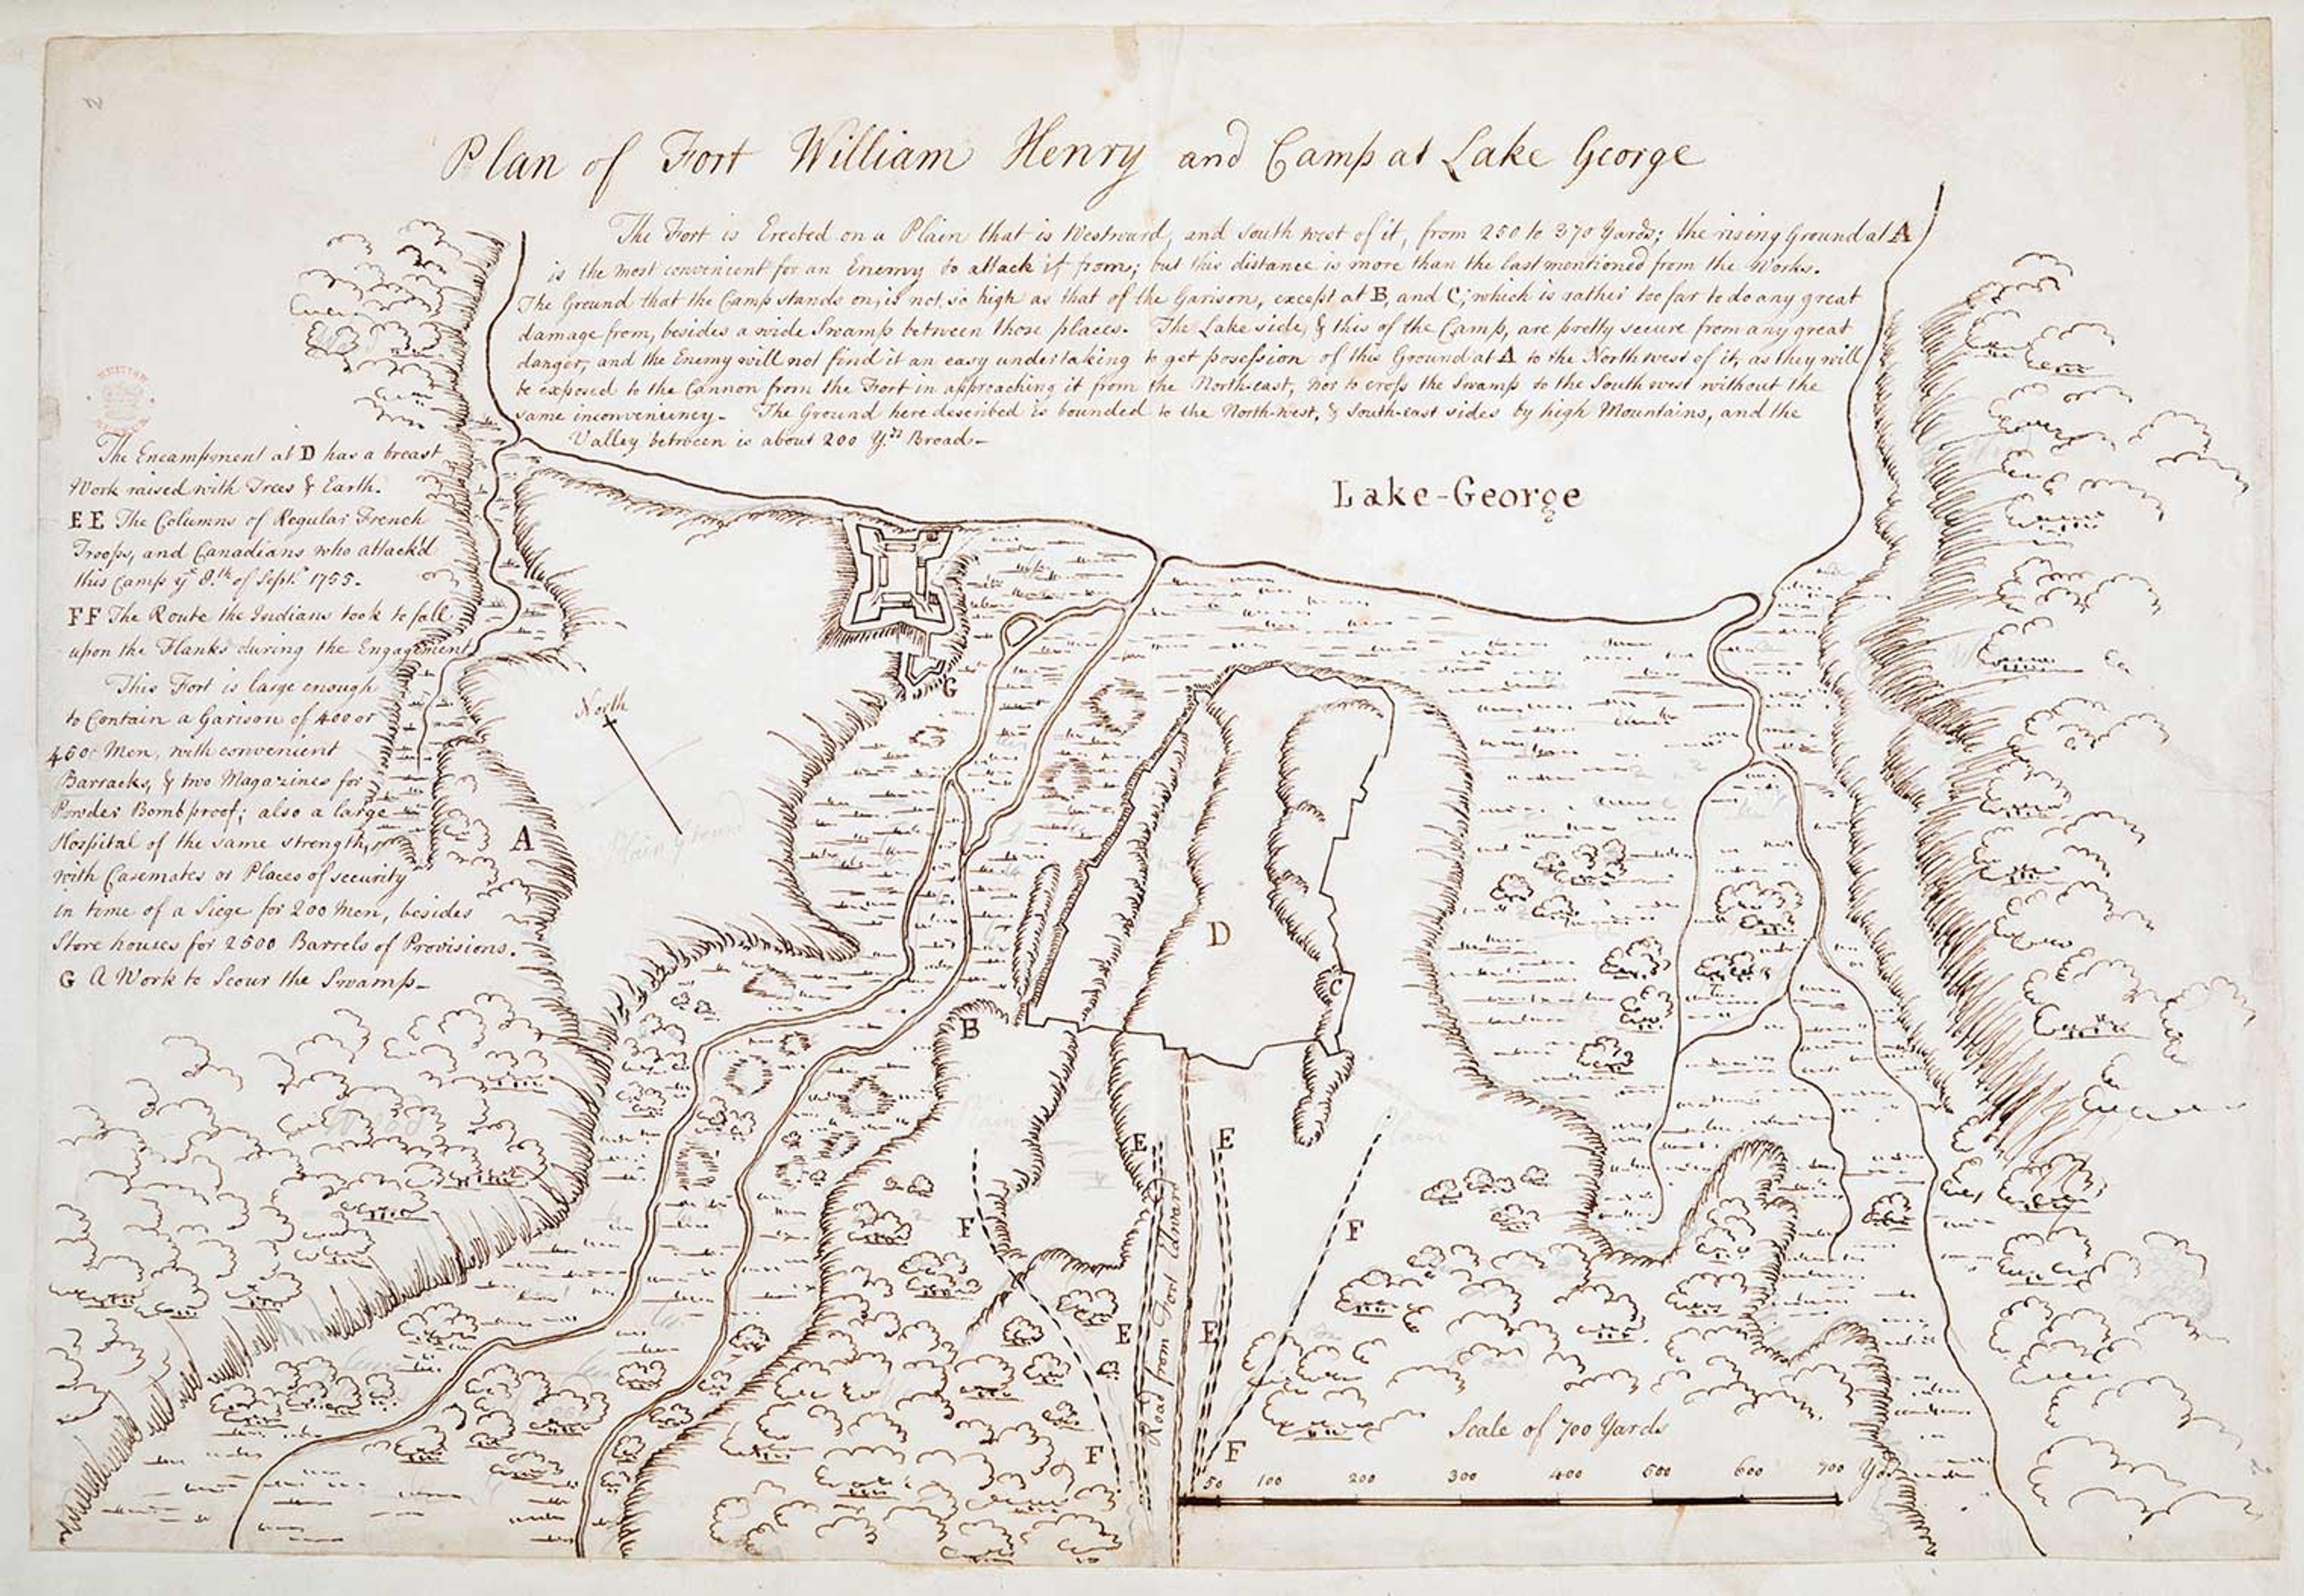 Plan of Fort William Henry and Camp at Lake George
The Fort is Erected on a Plain that is Westward, and South west of it, from 250 to 370 Yards; the rising Ground at A
is the most convenient for an Enemy to attack it from; but this distance is more than the last mentioned from the Works.
The Ground that the Camp stands on, is not so high as that of the Garison, except at B, and C; which is rather too far to do any great
damage from, besides a wide Swamp between those places. The Lake side, & this of the Camp, are pretty secure from any great
danger, and the Enemy will not find it an easy undertaking to get posession of this Ground at A to the North west of it, as they will
be exposed to the Cannon from the Fort in approaching it from the North-east, nor to cross the Swamp to the South west without the
same inconveniency. The Ground here described is bounded to the North-west, & South-east sides by high Mountains, and the
Valley between is about 200 Y.ds Broad-
The Encampment at D has a breast
Work raised with Trees & Earth.
EE The Columns of Regular French
Troops, and Canadians who attack'd
this Camp ye 8.th of Sept.r 1755.
FF The Route the Indians took to fall
upon the Flanks during the Engagement
This Fort is large enough
to Contain a Garison of 400 or
450 Men, with convenient
Barracks, & two Magazines for
Powder Bombproof; also a large
Hospital of the same strength,
with Casemates or Places of security
in time of a Siege for 200 Men, besides
Store houses for 2500 Barrels of Provisions.
G A Work to Scour the Swamp-
Lake-George
G
North
Plain Ground
A
D
C
B
Plain
Plain
E
E
F
F
E
E
Road from Fort Edward
F
F
Scale of 700 Yards
50 100 200 300 400 500 600 700 Yds